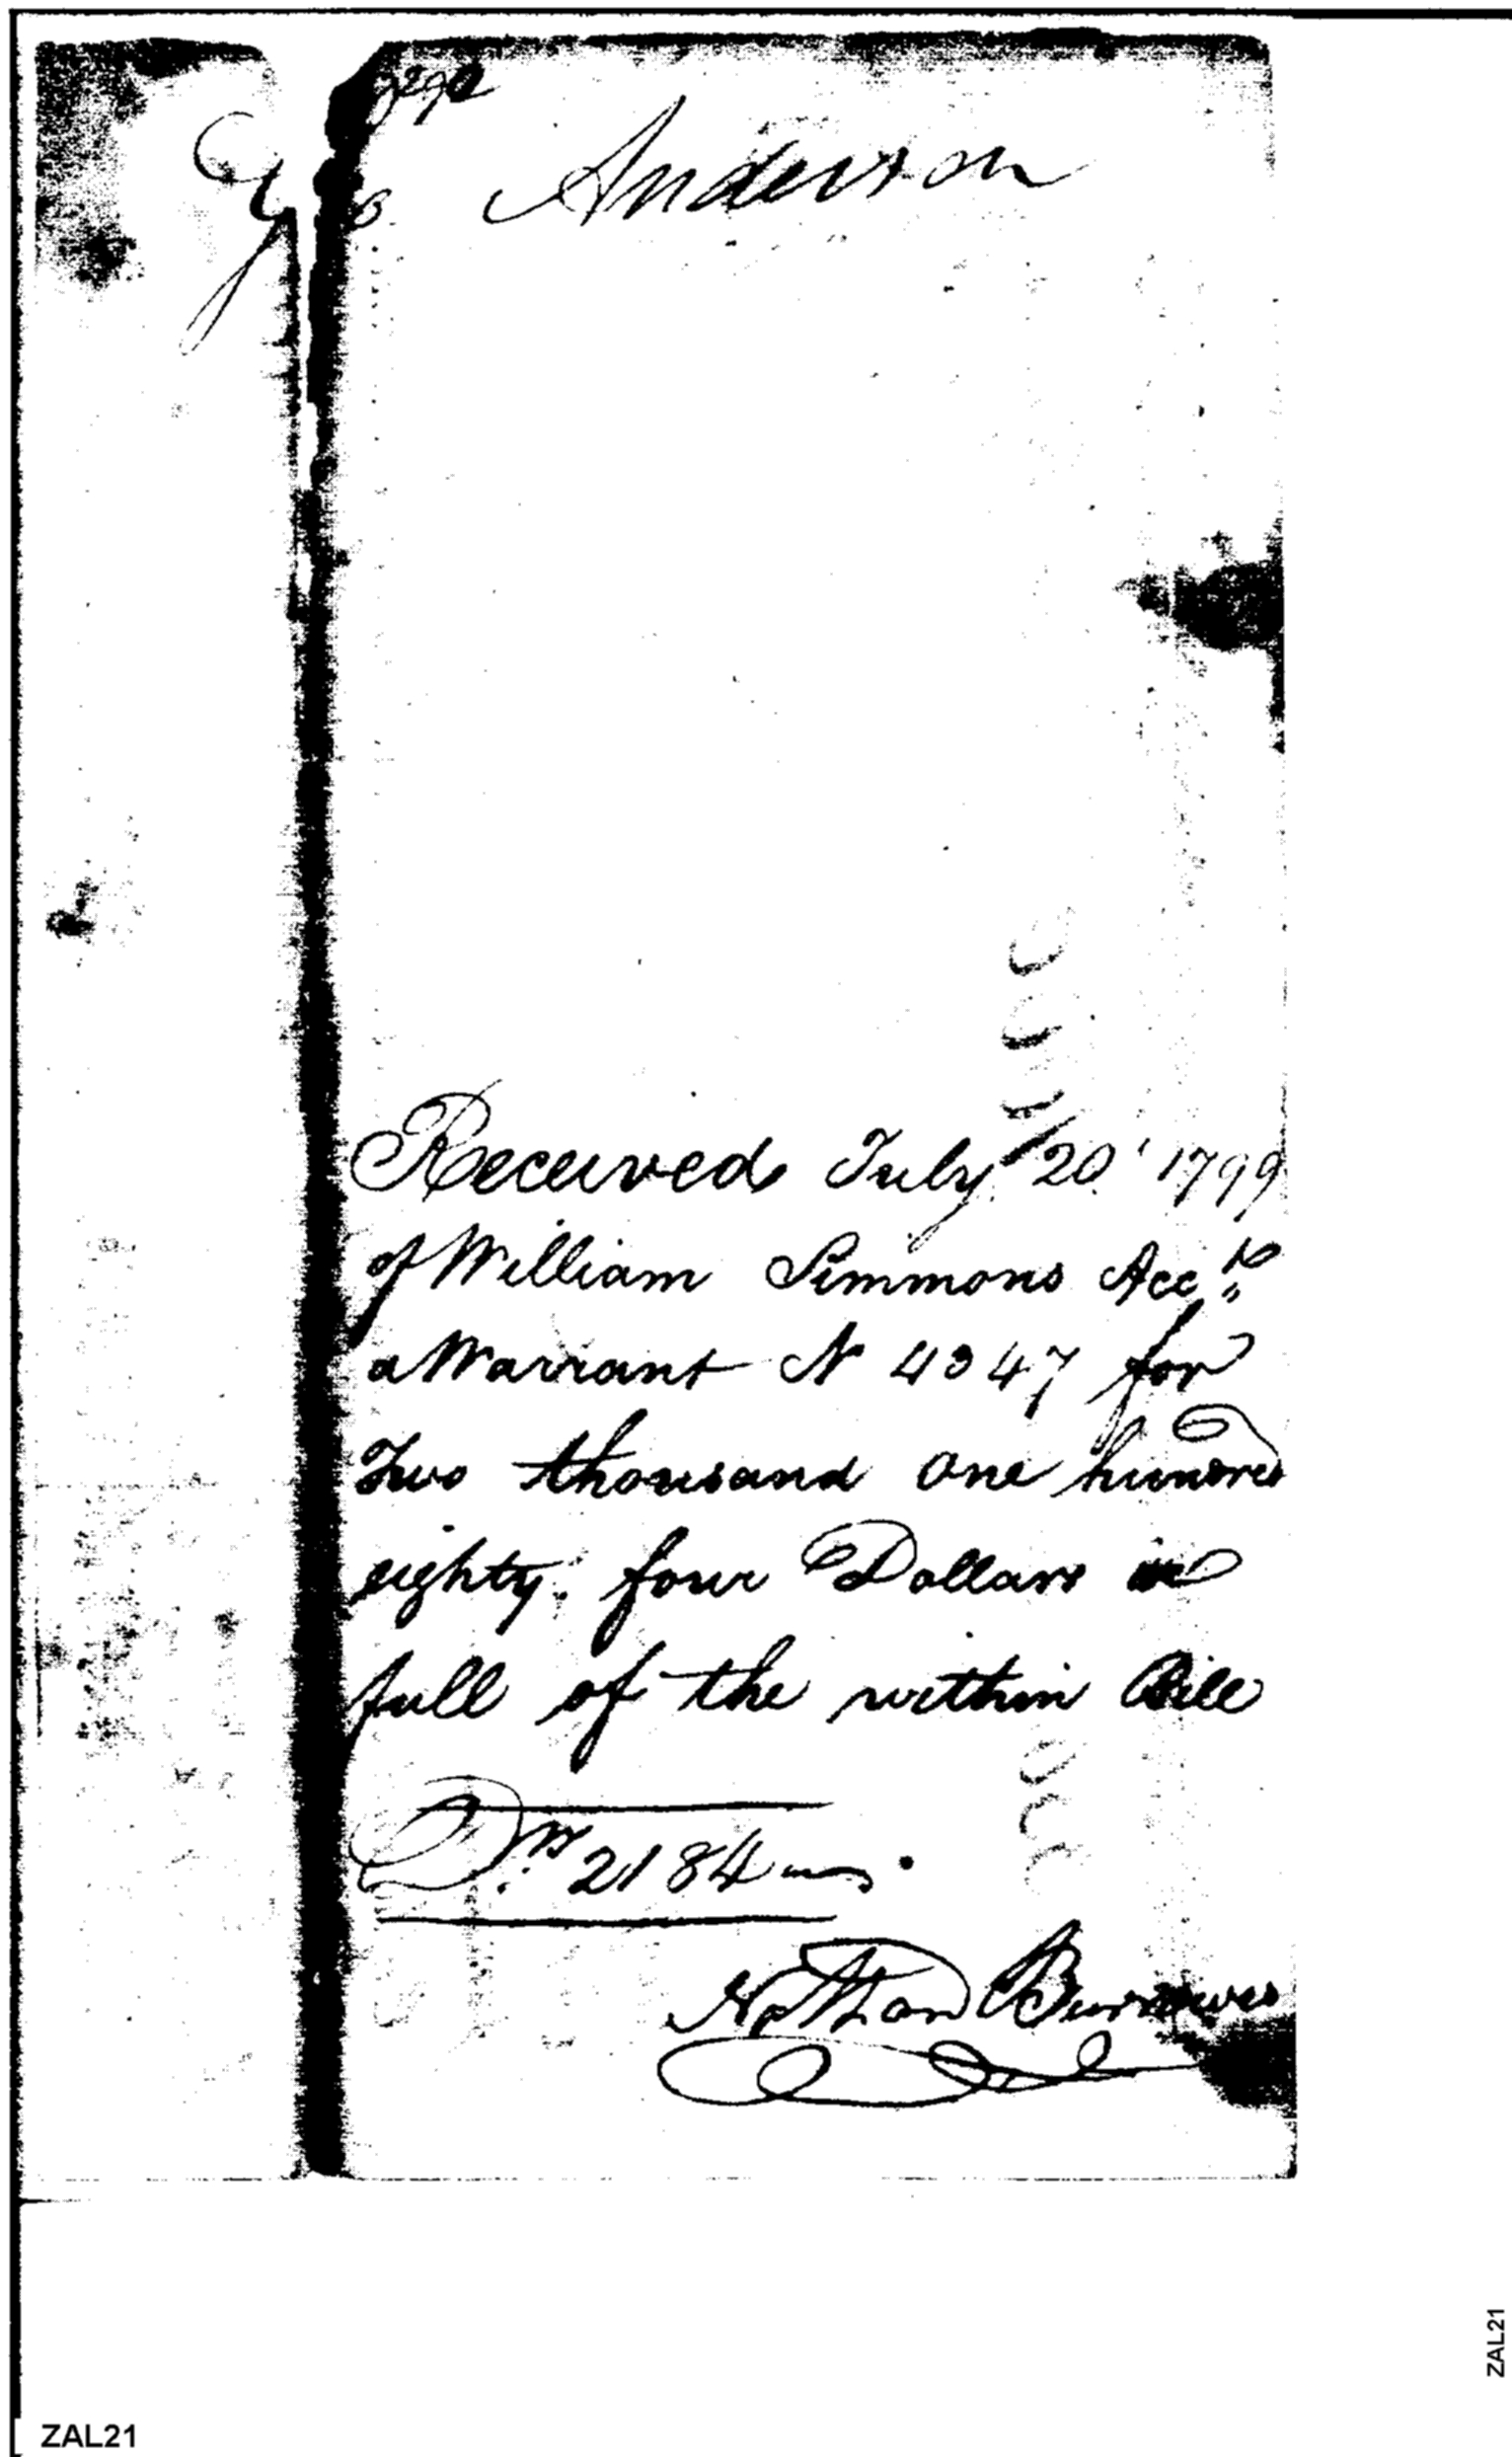 Anderson
Received July 20 1799
of William Simmons Acct
a Warrant N 4347 for
Two thousand one hundred
eighty four Dollars in
full of the within Bill
Drs 2184
Nathan Burrowes
ZAL21
ZAL21